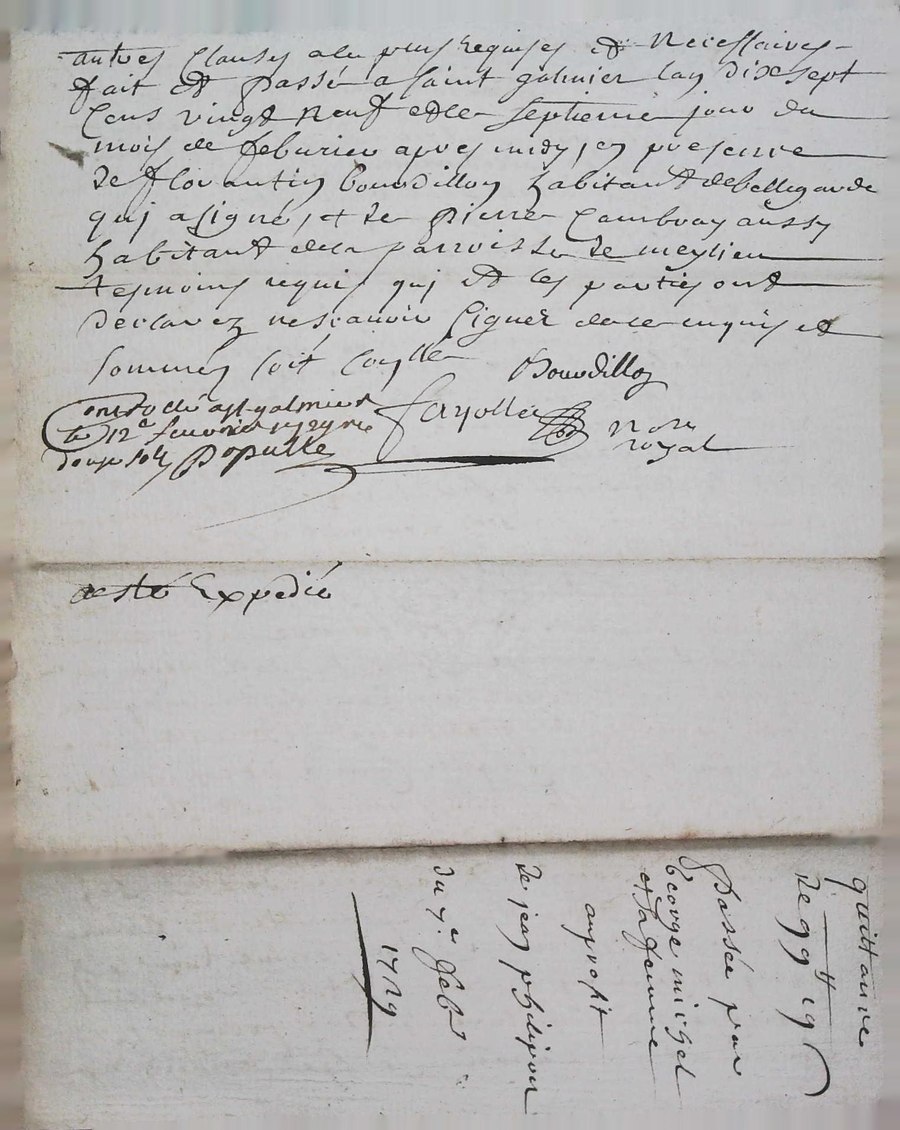 autres Clauses a ce plus requises et Necessaires
fait et passé a saint galmier lan dixsept
Cens vingt neuf et le septieme jour du
mois de feburier apres midy, en presence
de florantin bourdillon habitant de bellegarde
quj a signé, et de pierre Cambray aussy
habitant de la parroisse de meylieu
tesmoins requis quj et les parties ont
declarez ne scavoir signer de ce enquis et
sommés soit
Bourdillon
fayolle Nore royal
controllé a st galmier
le 12e feuvrier 1729 re
douze sols Populle
a esté Expedié
quittance
de 99 tt 19 s
Passée par
George michel
et sa femme
au profit
de jean
du 7e feb
1729